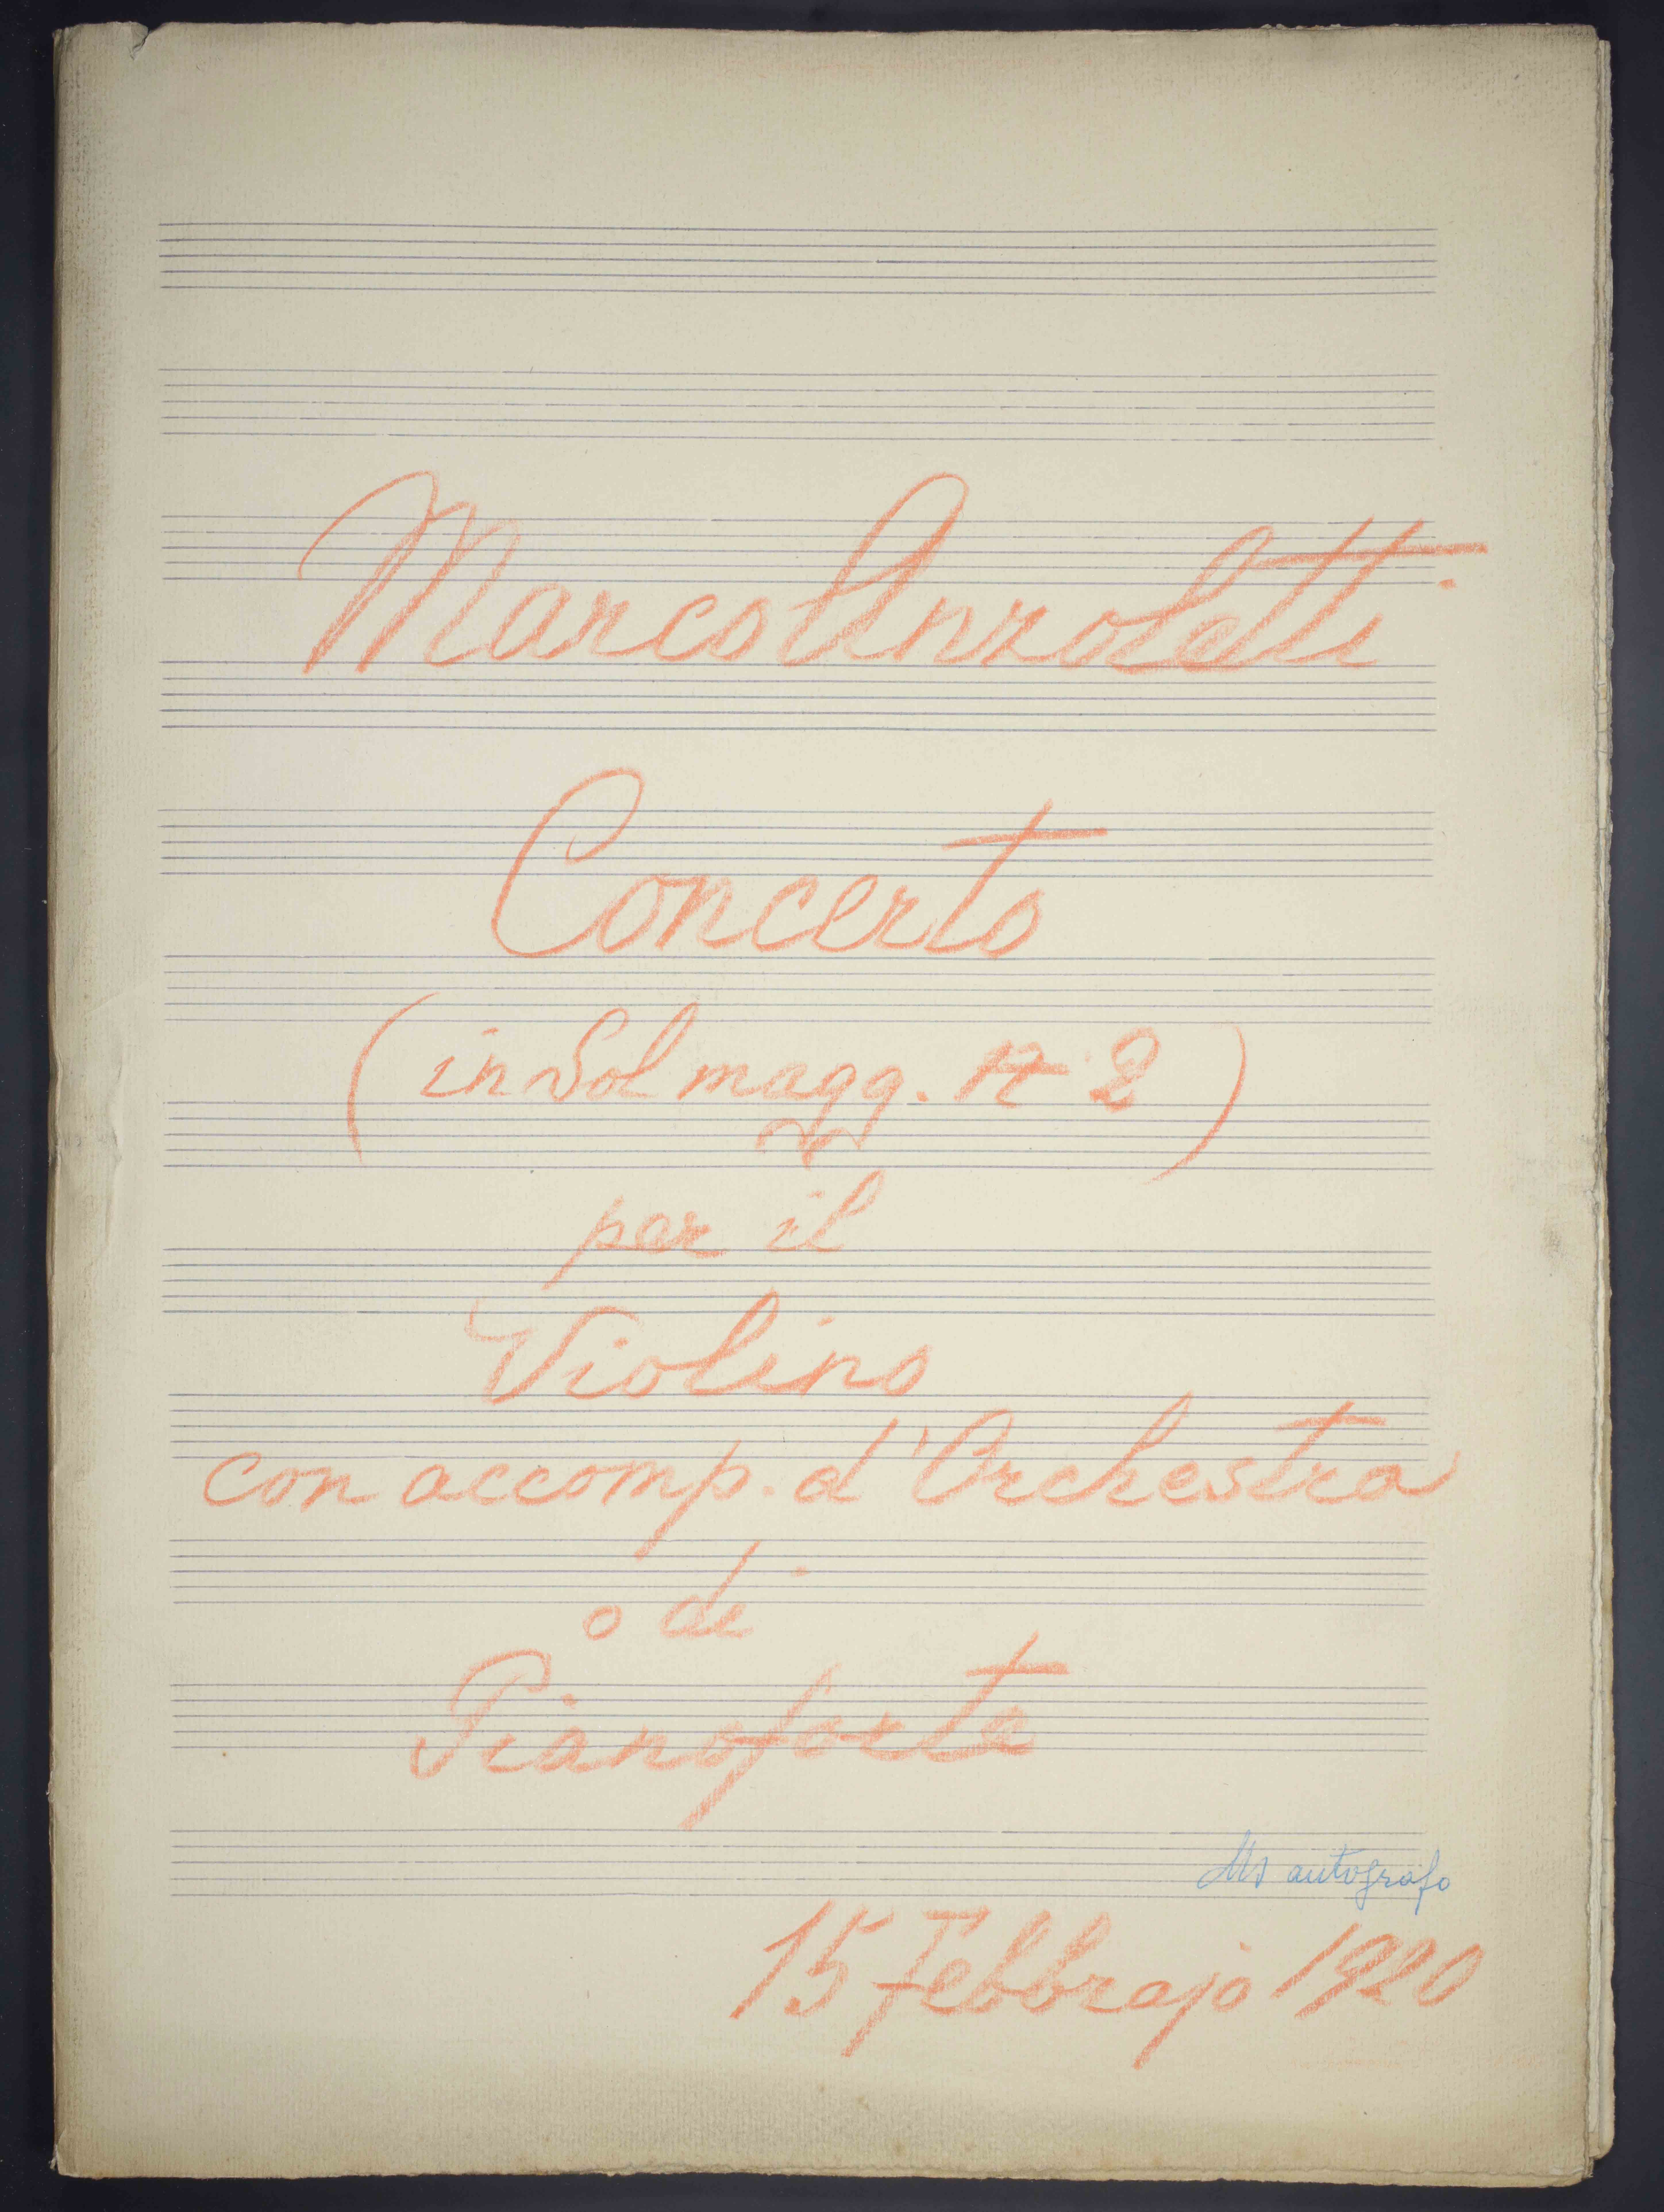 Marco Anzoletti
Concerto
(in Sol magg. N 2)
per il
Violino
con accomp. d'Orchestra
o di
Pianoforte
Ms autografo
15 Febbrajo 1920